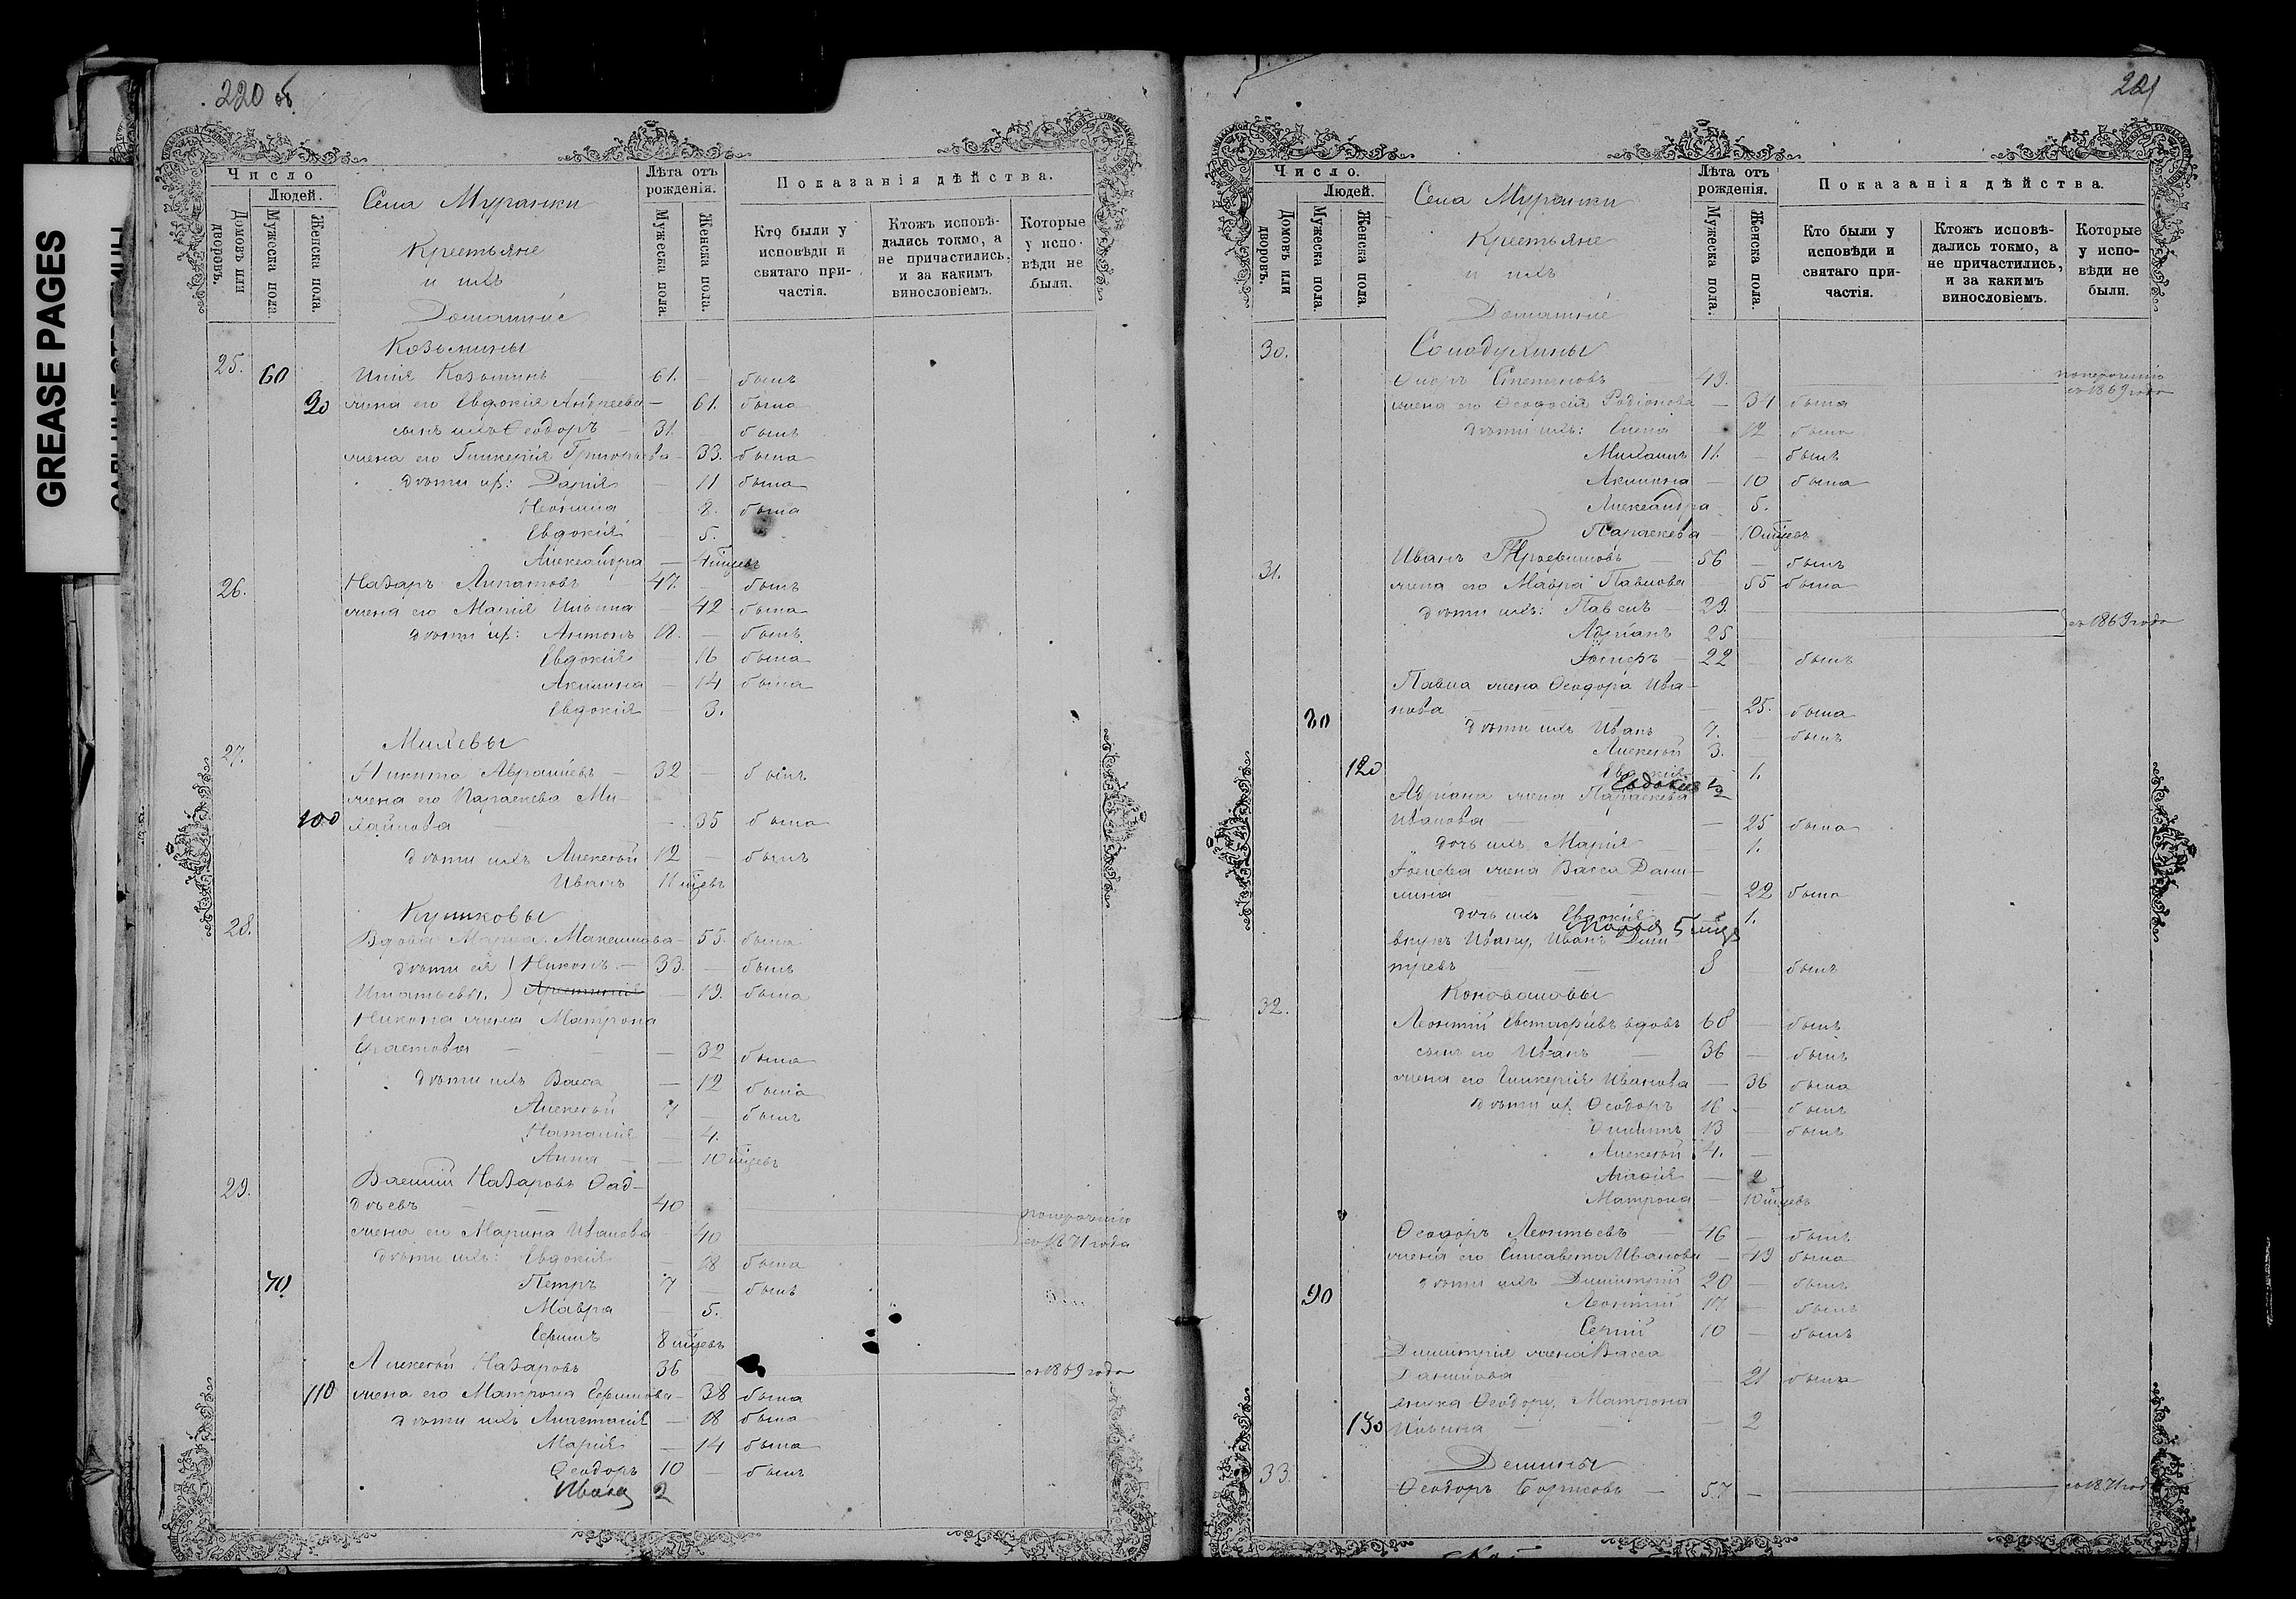 GREASE PAGES
220 об
Число
Людей.
Домовъ или дворовъ.
Мужеска пола.
Женска пола.
Села Муранки
Крестьяне
и ихъ
Домашніе
Лѣта отъ рожденія.
Мужеска пола.
Женска пола.
Показанія дѣйства.
Кто были у исповѣди и святаго причастія.
Ктожъ исповѣдались токмо, а не причастились, и за какимъ винословіемъ.
Которые у исповѣди не были.
Козьмины
25. 60 Илія Козьминъ 61. — былъ
90 жена его Евдокія Андреева — 61. была
сынъ ихъ Ѳеодоръ — 31. былъ
жена его Гликерія Григорьева — 33. была
дѣти их: Дарія — 11 была
Неонила — 8. была
Евдокія — 5.
Александра — 4 мѣсцевъ
26. Назаръ Липатовъ 47. — былъ
жена его Марія Ильина — 42 была
дѣти их: Антонъ 18. — былъ
Евдокія — 16 была
Акилина — 14 была
Евдокія — 3.
27. Михевы
Никита Авраміевъ — 32 — былъ
жена его Параскева Ми—
100 хайлова — 35 была
дѣти ихъ Алексѣй 12 — былъ
Иванъ 11 мѣсцевъ
28. Куликовы
Вдова Марѳа Максимова — 55. была
дѣти ея Никонъ — 33. — былъ
Игнатьевы. — 19. была
Никона жена Матрона
— 32 была
дѣти ихъ Васса — 12 была
Алексѣй 7 — былъ
Наталія — 4.
Анна — 10 мѣсцевъ
29. Василій Назаровъ Ѳад—
дѣевъ — 40
жена его Марина Иванова 40
по нерачению съ 1871 года
дѣти ихъ: Евдокія — 18 была
70 Петръ 7 — былъ
Мавра — 5.
Ефимъ 8 мѣсцевъ
Алексѣй Назаровъ 36 съ 1869 года
110 жена его Матрона Ефимова — 38 была
дѣти ихъ Анастасія — 18 была
Марія — 14 была
Ѳеодоръ 10 — былъ
Иванъ 2
221
Число.
Людей.
Домовъ или дворовъ.
Мужеска пола.
Женска пола.
Села Муранки
Крестьяне
и ихъ
Домашніе
Лѣта отъ рожденія.
Мужеска пола.
Женска пола.
Показанія дѣйства.
Кто были у исповѣди и святаго причастія.
Ктожъ исповѣдались токмо, а не причастились, и за какимъ винословіемъ.
Которые у исповѣди не были.
30. Солодухины
Степановъ 49. по нерачению съ 1869 года
жена его Ѳеодосія Родіонова — 34 была
дѣти ихъ: Елена 12 была
Михаилъ 11. — былъ
Акилина — 10 была
Александра 5.
Параскева — 10 мѣсцевъ
31. Иванъ Трофимовъ 56 — былъ
жена его Мавра Павлова 55 была
дѣти ихъ: Павелъ — 29.
Адріанъ 25 съ 1869 года
22 — былъ
Павла жена Ѳеодора Ива—
нова — 25. была
80 дѣти ихъ Иванъ 7. — былъ
Алексѣй 3. —
120 Евдокія 1.
Евдокія ½
Адріана жена Параскева
Иванова — 25 была
дочь ихъ Марія — 1.
жена Васса Дани—
лина — 22 была
дочь ихъ Евдокія 1.
5 мѣсц
внукъ Ивану, Иванъ Дми
тріевъ — 8 былъ
32. Коноваловы
Леонтій Евстафіевъ вдовъ 68 — былъ
сынъ его Иванъ — 36 — былъ
жена его Гликерія Иванова — 36 была
дѣти их: Ѳеодоръ 16 — былъ
Филиппъ 13 — былъ
Алексѣй 4. —
Агаѳія — 2
Матрона — 10 мѣсцевъ
Ѳеодоръ Леонтьевъ — 46 — былъ
жена его Елисавета Иванова — 49 была
дѣти ихъ Димитрій 20 — былъ
90 Леонтій 17 — былъ
Сергій 10 — былъ
Димитрія жена Васса
Данилова — 21 была
внука Ѳеодору, Матрона
130 Ильина — 2
33. Демины
Ѳеодоръ Борисовъ — 57 — съ 1871 года